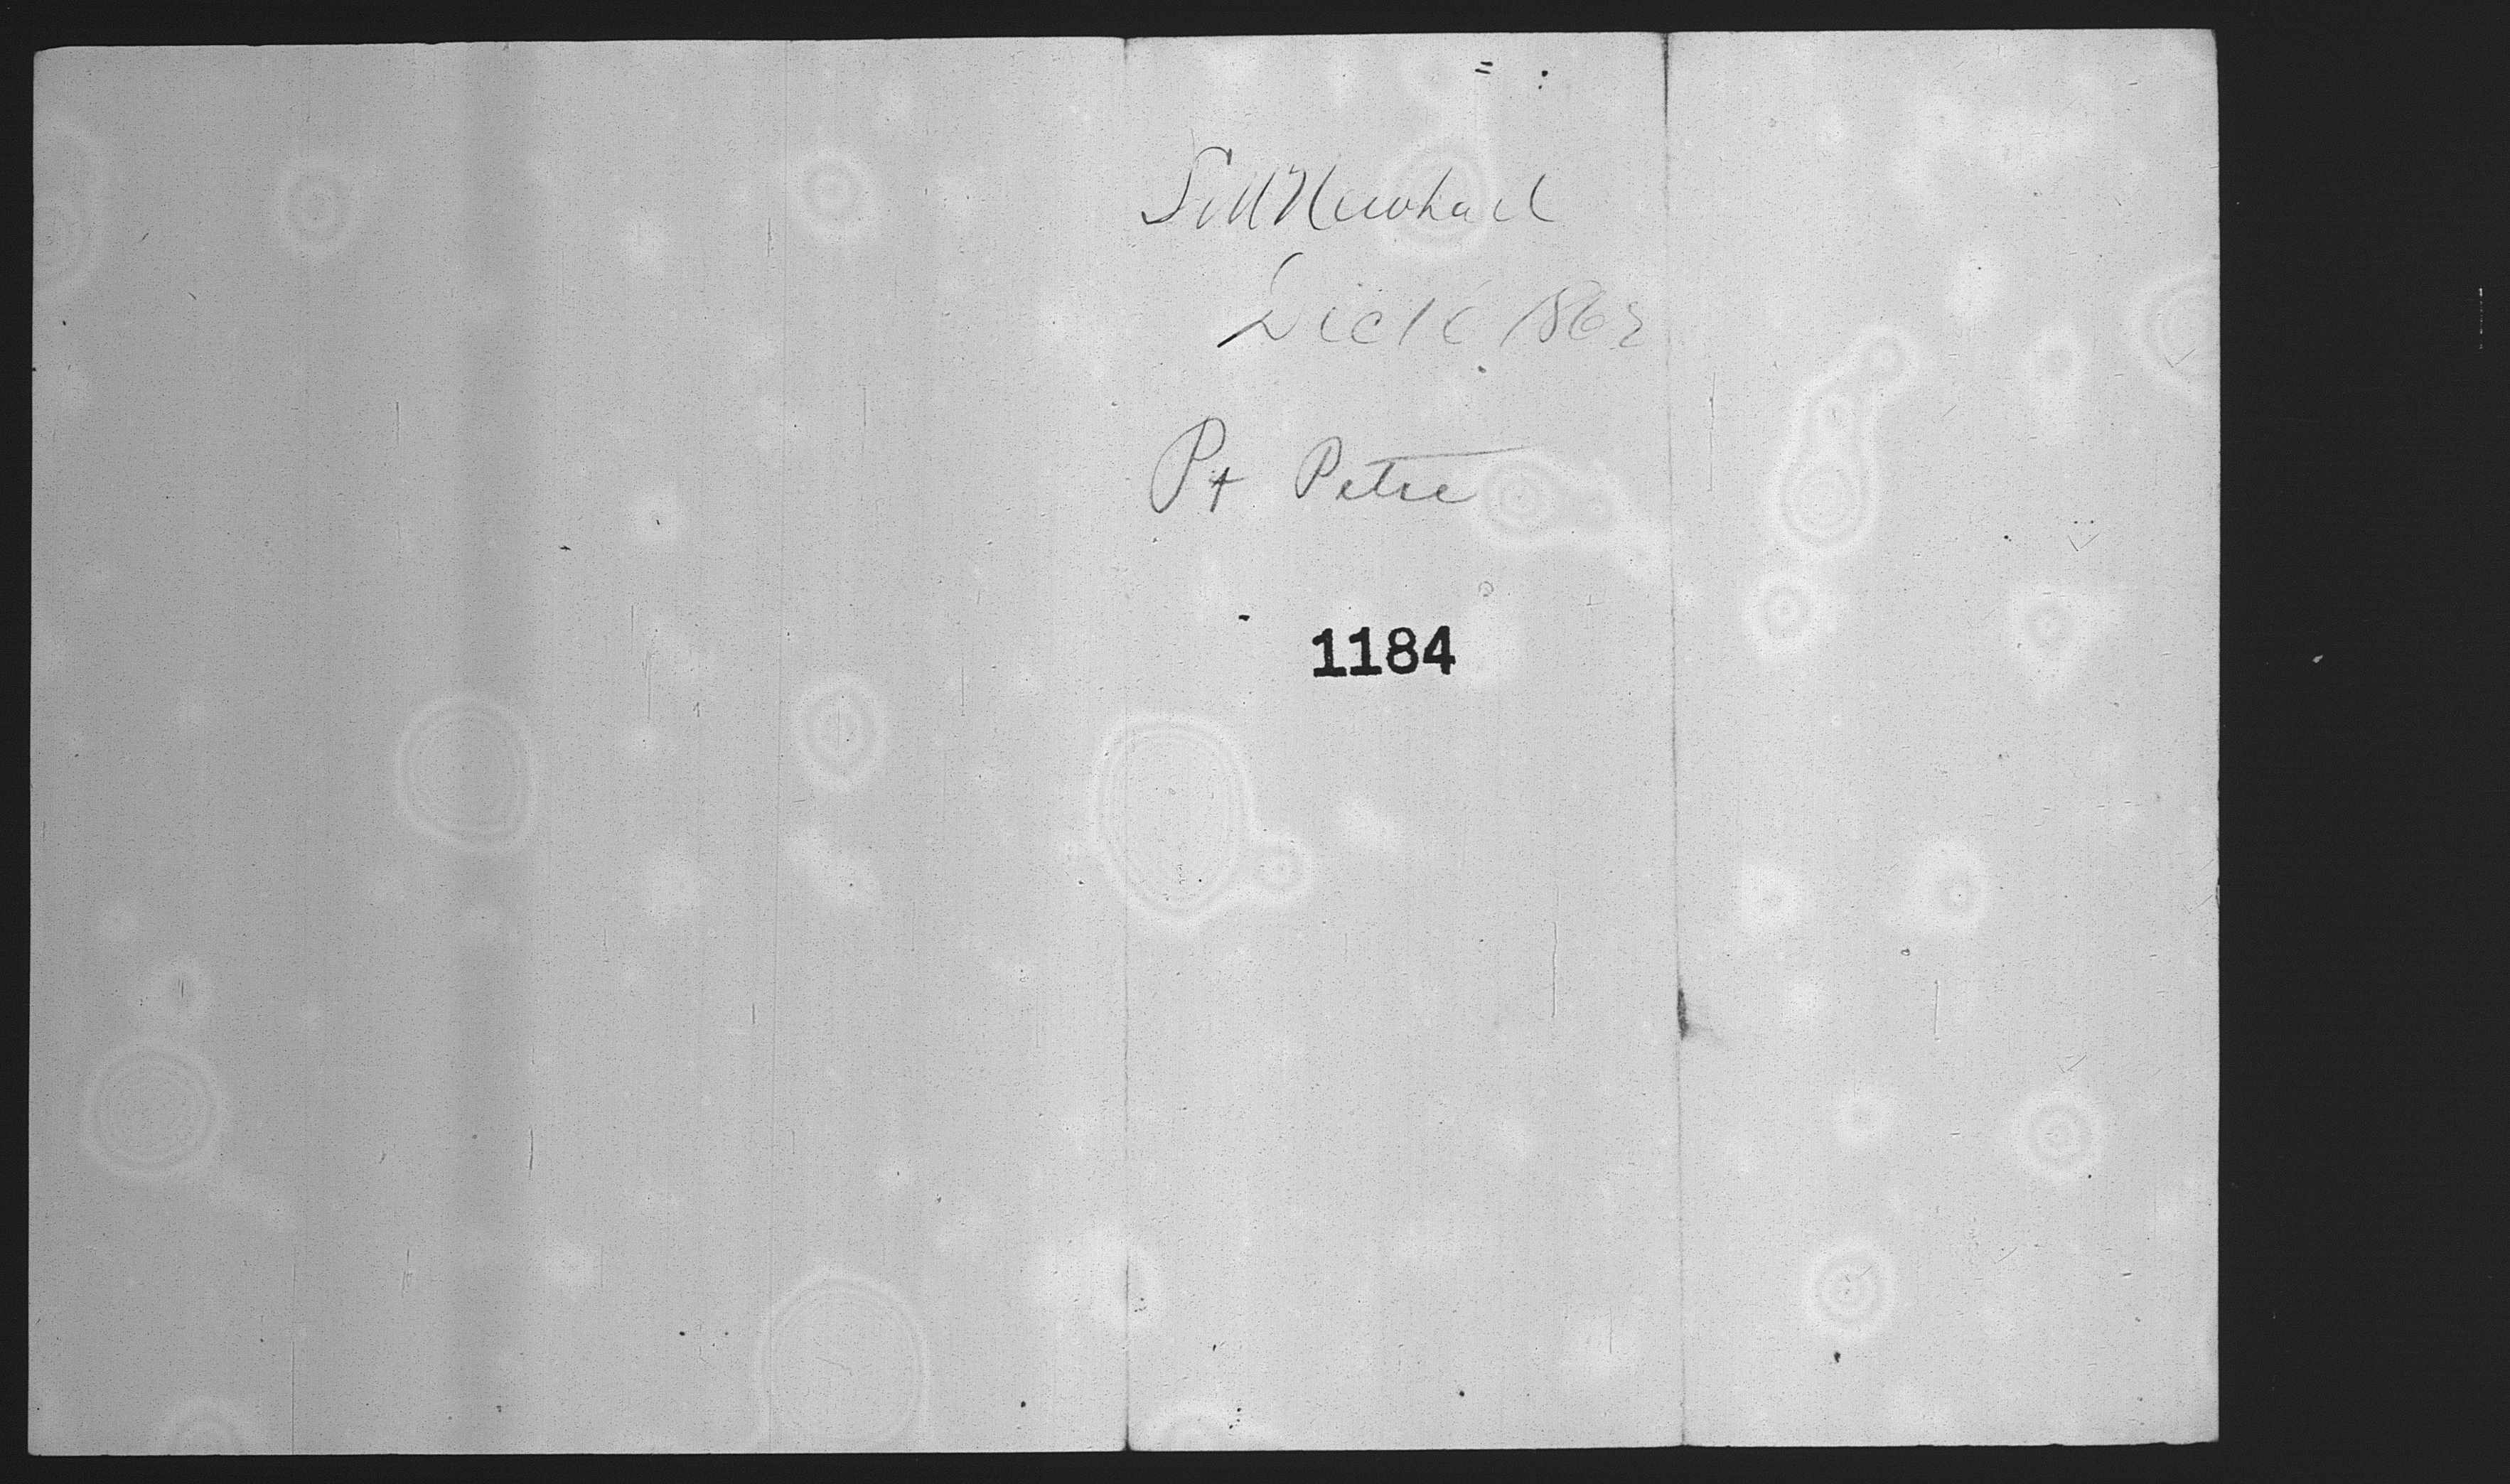 Newhall
Dec 1862
Pt Petre
1184